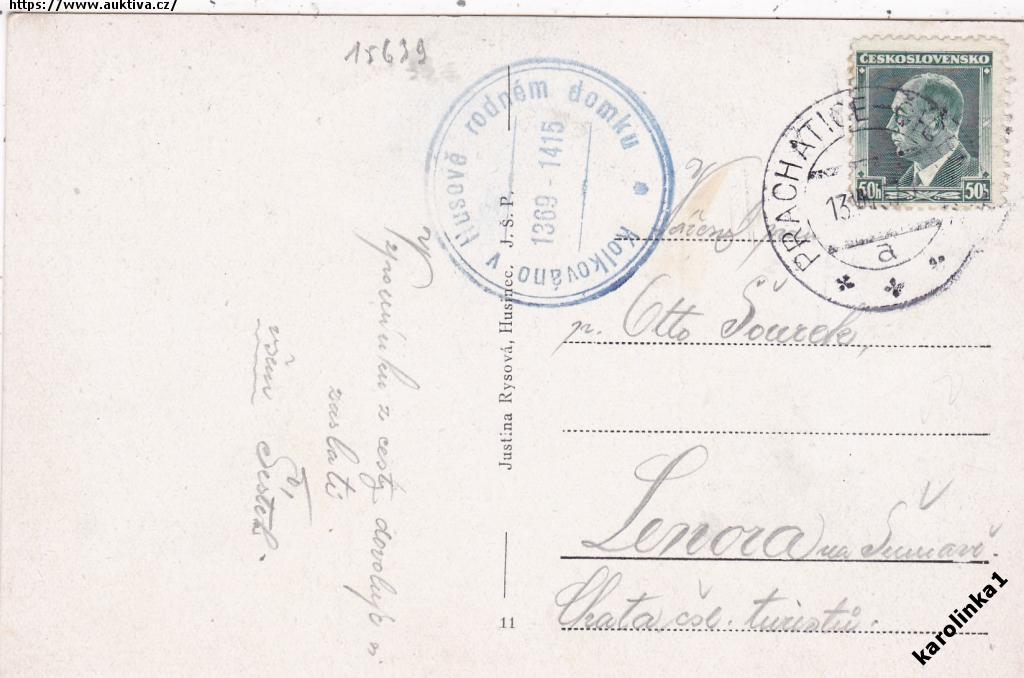 https://www.auktiva.cz/
15639
Kolkováno v Husově rodném domku
1369 - 1415
ČESKOSLOVENSKO
50h 50h
PRACHATICE
13
a
V
zpomínku z cesty dovoluji si
zaslati
všem
Justina Rysová, Husinec. J. Š. P.
11
Vážený pan
p. Otto Šourek,
Lenora na Šumavě.
Chata čsl. turistů.
karolinka1